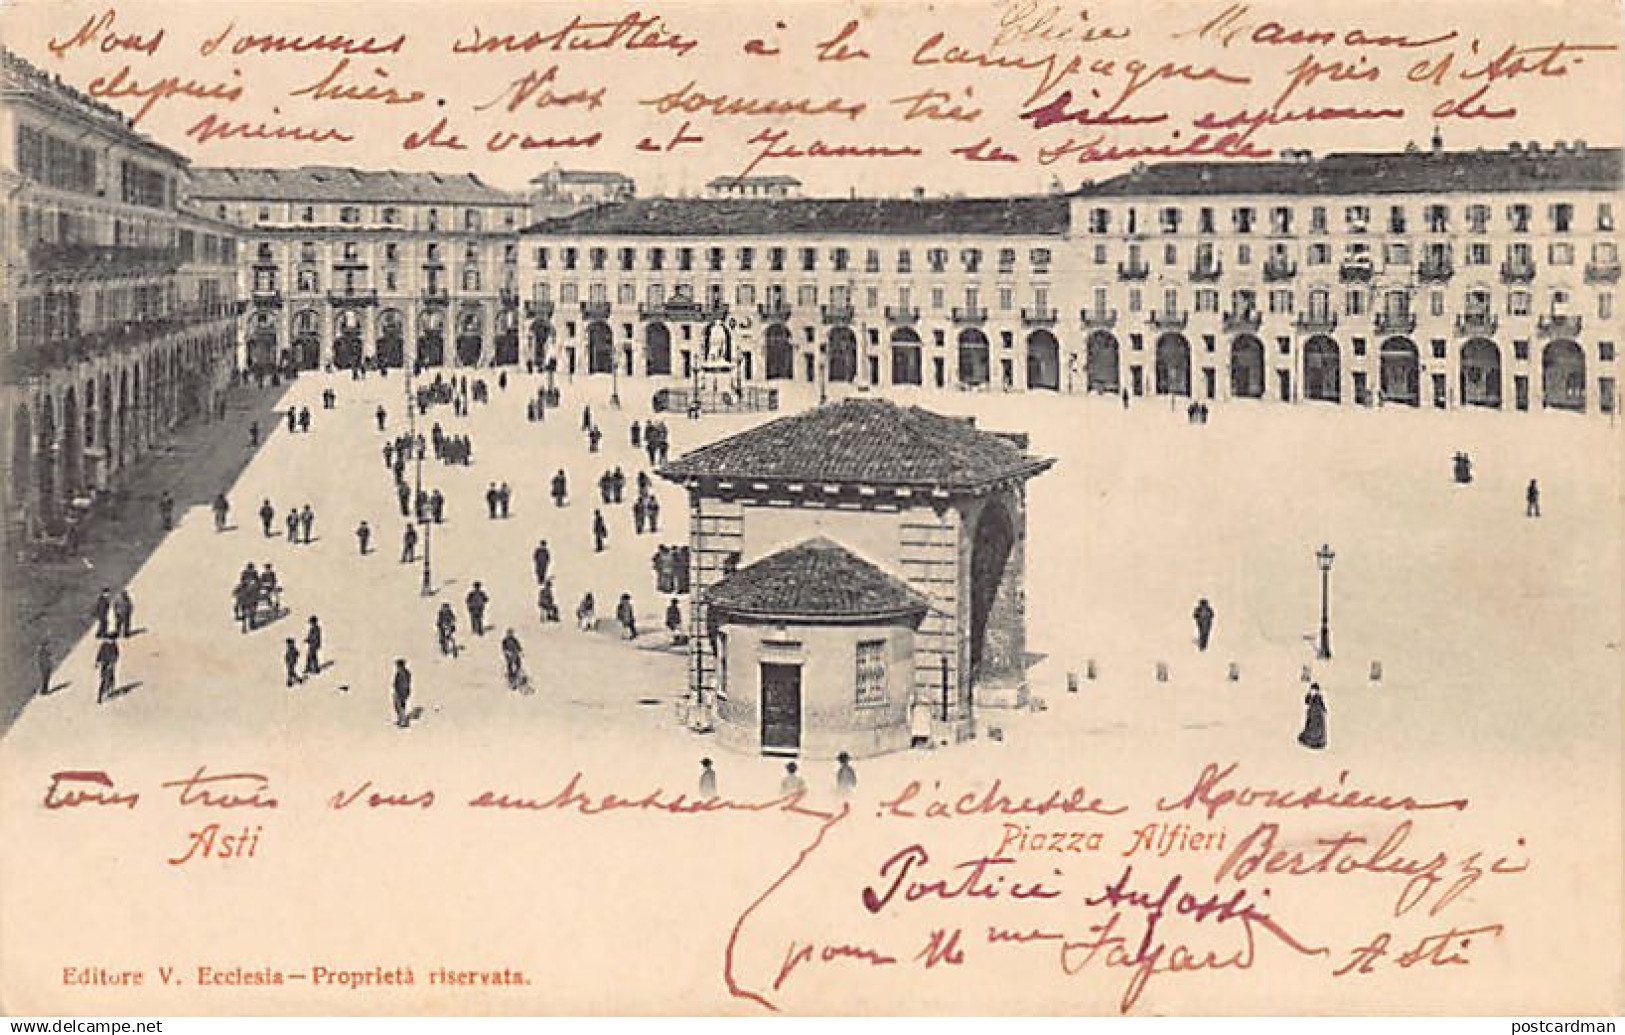 Chère Maman.
Nous sommes installés à la campagne près d'Asti
depuis hière. Nous sommes très bien esperons de
même de vous et Jeanne de
Tous trois vous embrassent l'adresse Monsieur
Asti Piazza Alfieri Bertoluzzi
Portici Anfossi
pour Mme Fayard Asti
Editore V. Ecclesia — Proprietà riservata.
delcampe.net postcardman